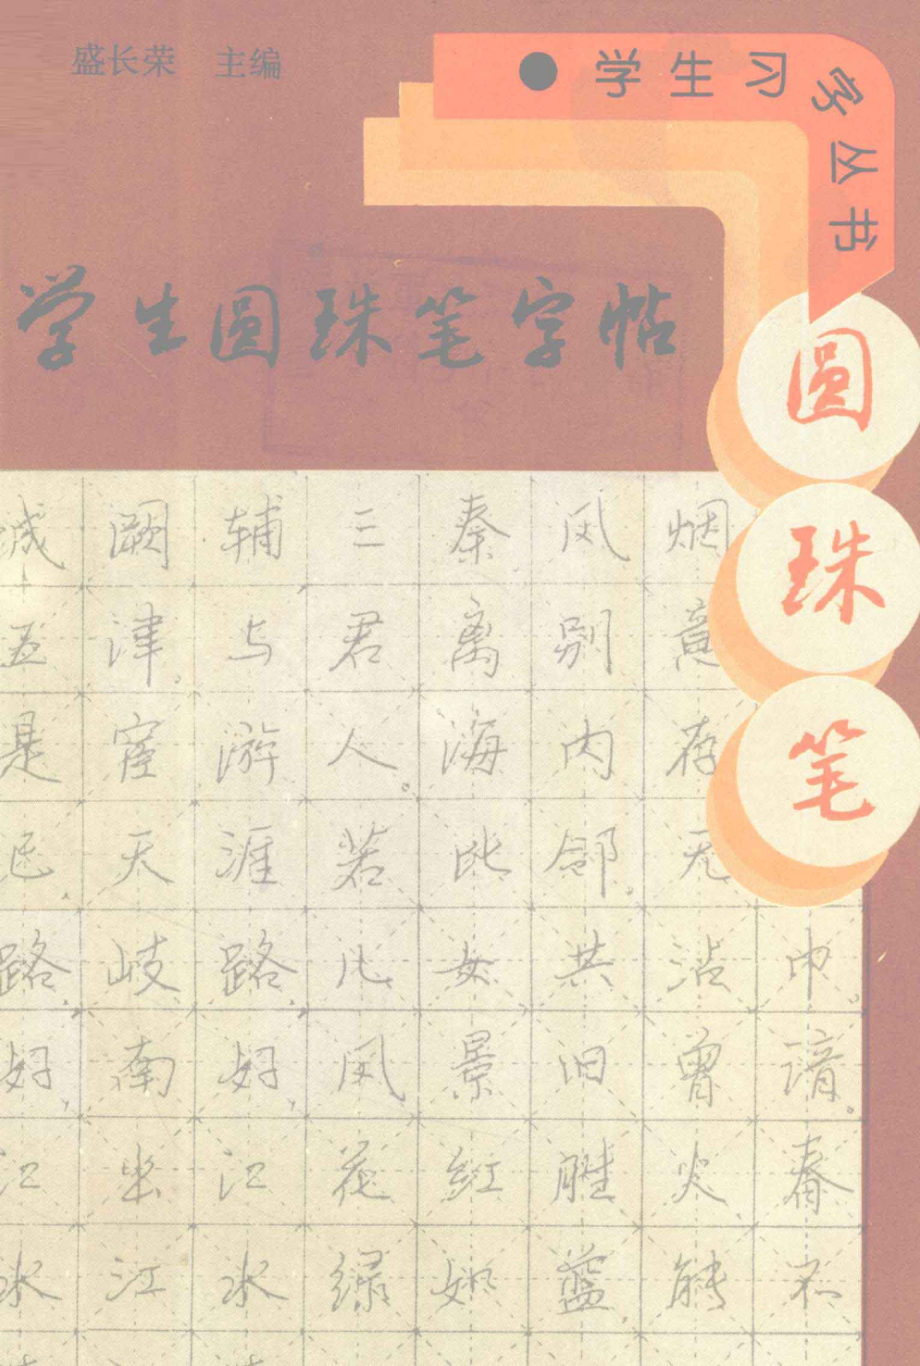 盛长荣 主编
●学生习字丛书
学生圆珠笔字帖
圆珠笔
城阙辅三秦风烟
五津与君离别意
是宦游人。海内存
已,天涯若比邻。无
路,岐路,儿女共沾巾。
好,南好,风景旧曾谙。
江出江花红胜火春
水江水绿如蓝能不